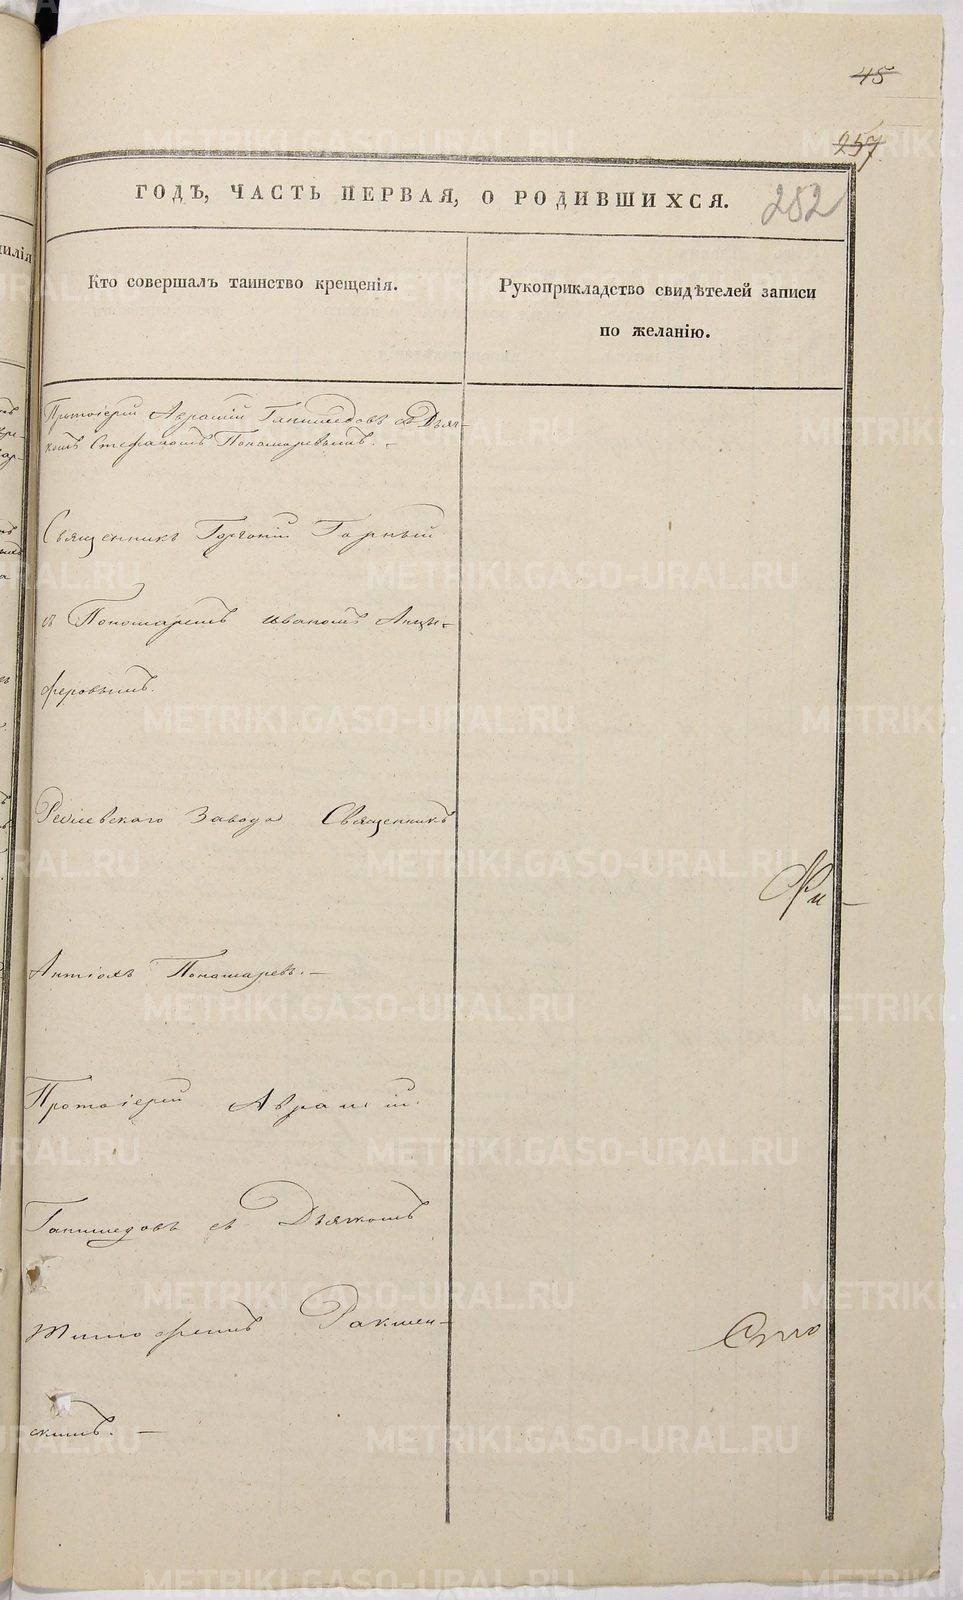 45
257
ГОДЪ, ЧАСТЬ ПЕРВАЯ, О РОДИВШИХСЯ.
252
Кто совершалъ таинство крещенія.
Рукоприкладство свидѣтелей записи
по желанію.
Протоіерей Аврамій съ Дьяч-
комъ Стефаномъ Пономаревымъ.
Священникъ Горгоній Горный
съ Пономаремъ Иваномъ Анци-
феровымъ.
Ревдевскаго Завода Священникъ
Антіохъ Пономаревъ. —
Протоіерей Аврамій
съ Дьячкомъ
Тимофеемъ
скимъ. —
METRIKI.GASO-URAL.RU